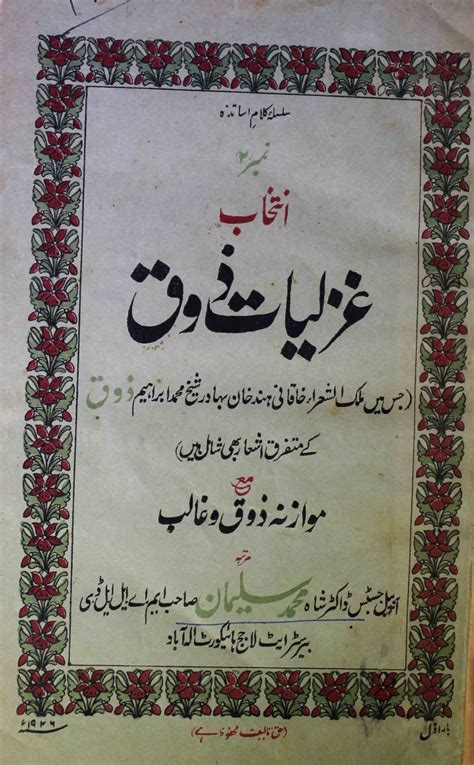 سلسلۂ کلامِ اساتذہ
نمبر ۲
انتخاب
غزلیات ذوق
(جس میں ملک الشعراء خاقانی ہند خان بہادر شیخ محمد ابراہیم ذوق
کے متفرق اشعار بھی شامل ہیں)
مع
موازنہ ذوق و غالب
مرتبہ
آنریبل جسٹس ڈاکٹر شاہ محمد سلیمان صاحب ایم اے ایل ایل ڈی
بیرسٹر ایٹ لا جج ہائیکورٹ الہ آباد
بار اول
(حق تالیف محفوظ ہے)
سنہ ۱۹۲۶ء